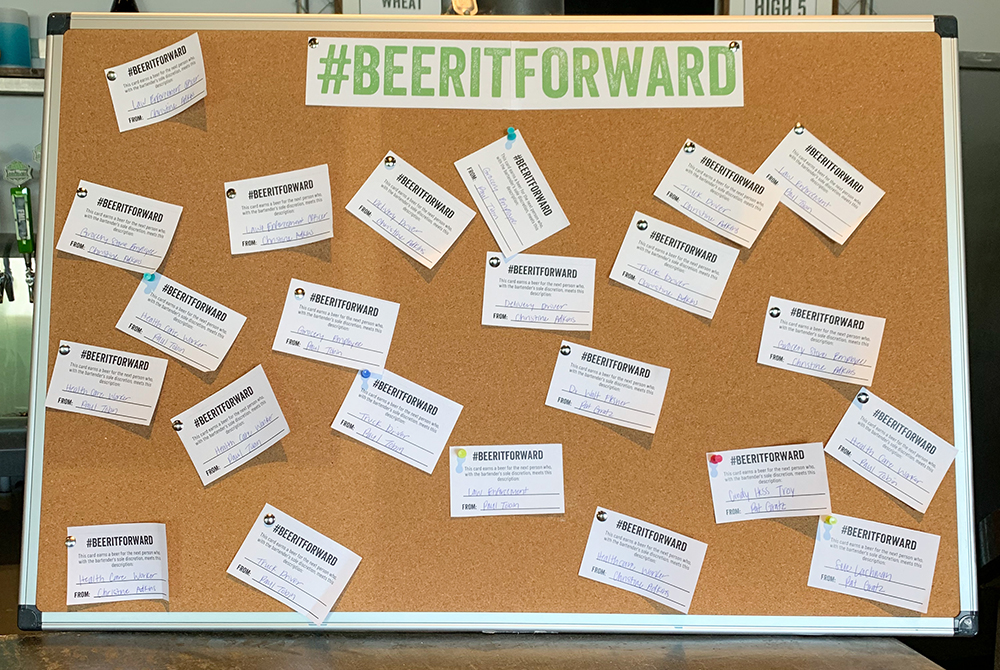 WHEAT
HIGH 5
#BEERITFORWARD
#BEERITFORWARD
This card earns a beer for the next person who,
with the bartender's sole discretion, meets this
description:
Law Enforcement Officer
FROM: Christine Adkins
#BEERITFORWARD
This card earns a beer for the next person who,
with the bartender's sole discretion, meets this
description:
Grocery Store Employee
FROM: Christine Adkins
#BEERITFORWARD
This card earns a beer for the next person who,
with the bartender's sole discretion, meets this
description:
Law Enforcement Officer
FROM: Christine Adkins
#BEERITFORWARD
This card earns a beer for the next person who,
with the bartender's sole discretion, meets this
description:
Delivery Driver
FROM: Christine Adkins
#BEERITFORWARD
This card earns a beer for the next person who,
with the bartender's sole discretion, meets this
description:
Grocery Employee
FROM: Paul Tobin
#BEERITFORWARD
This card earns a beer for the next person who,
with the bartender's sole discretion, meets this
description:
Truck Driver
FROM: Christine Adkins
#BEERITFORWARD
This card earns a beer for the next person who,
with the bartender's sole discretion, meets this
description:
Law Enforcement
FROM: Paul Tobin
#BEERITFORWARD
This card earns a beer for the next person who,
with the bartender's sole discretion, meets this
description:
Truck Driver
FROM: Christine Adkins
#BEERITFORWARD
This card earns a beer for the next person who,
with the bartender's sole discretion, meets this
description:
Health Care Worker
FROM: Paul Tobin
#BEERITFORWARD
This card earns a beer for the next person who,
with the bartender's sole discretion, meets this
description:
Grocery Employee
FROM: Paul Tobin
#BEERITFORWARD
This card earns a beer for the next person who,
with the bartender's sole discretion, meets this
description:
Delivery Driver
FROM: Christine Adkins
#BEERITFORWARD
This card earns a beer for the next person who,
with the bartender's sole discretion, meets this
description:
Grocery Store Employee
FROM: Christine Adkins
#BEERITFORWARD
This card earns a beer for the next person who,
with the bartender's sole discretion, meets this
description:
Health Care Worker
FROM: Paul Tobin
#BEERITFORWARD
This card earns a beer for the next person who,
with the bartender's sole discretion, meets this
description:
Health Care Worker
FROM: Paul Tobin
#BEERITFORWARD
This card earns a beer for the next person who,
with the bartender's sole discretion, meets this
description:
Truck Driver
FROM: Paul Tobin
#BEERITFORWARD
This card earns a beer for the next person who,
with the bartender's sole discretion, meets this
description:
Dr Walt
FROM: Pat Goatz
#BEERITFORWARD
This card earns a beer for the next person who,
with the bartender's sole discretion, meets this
description:
Health Care Worker
FROM: Paul Tobin
#BEERITFORWARD
This card earns a beer for the next person who,
with the bartender's sole discretion, meets this
description:
Law Enforcement
FROM: Paul Tobin
#BEERITFORWARD
This card earns a beer for the next person who,
with the bartender's sole discretion, meets this
description:
Sandy Hess Troy
FROM: Pat Goatz
#BEERITFORWARD
This card earns a beer for the next person who,
with the bartender's sole discretion, meets this
description:
Health Care Worker
FROM: Christine Adkins
#BEERITFORWARD
This card earns a beer for the next person who,
with the bartender's sole discretion, meets this
description:
Truck Driver
FROM: Paul Tobin
#BEERITFORWARD
This card earns a beer for the next person who,
with the bartender's sole discretion, meets this
description:
Healthcare Worker
FROM: Christine Adkins
#BEERITFORWARD
This card earns a beer for the next person who,
with the bartender's sole discretion, meets this
description:
FROM: Pat Goatz